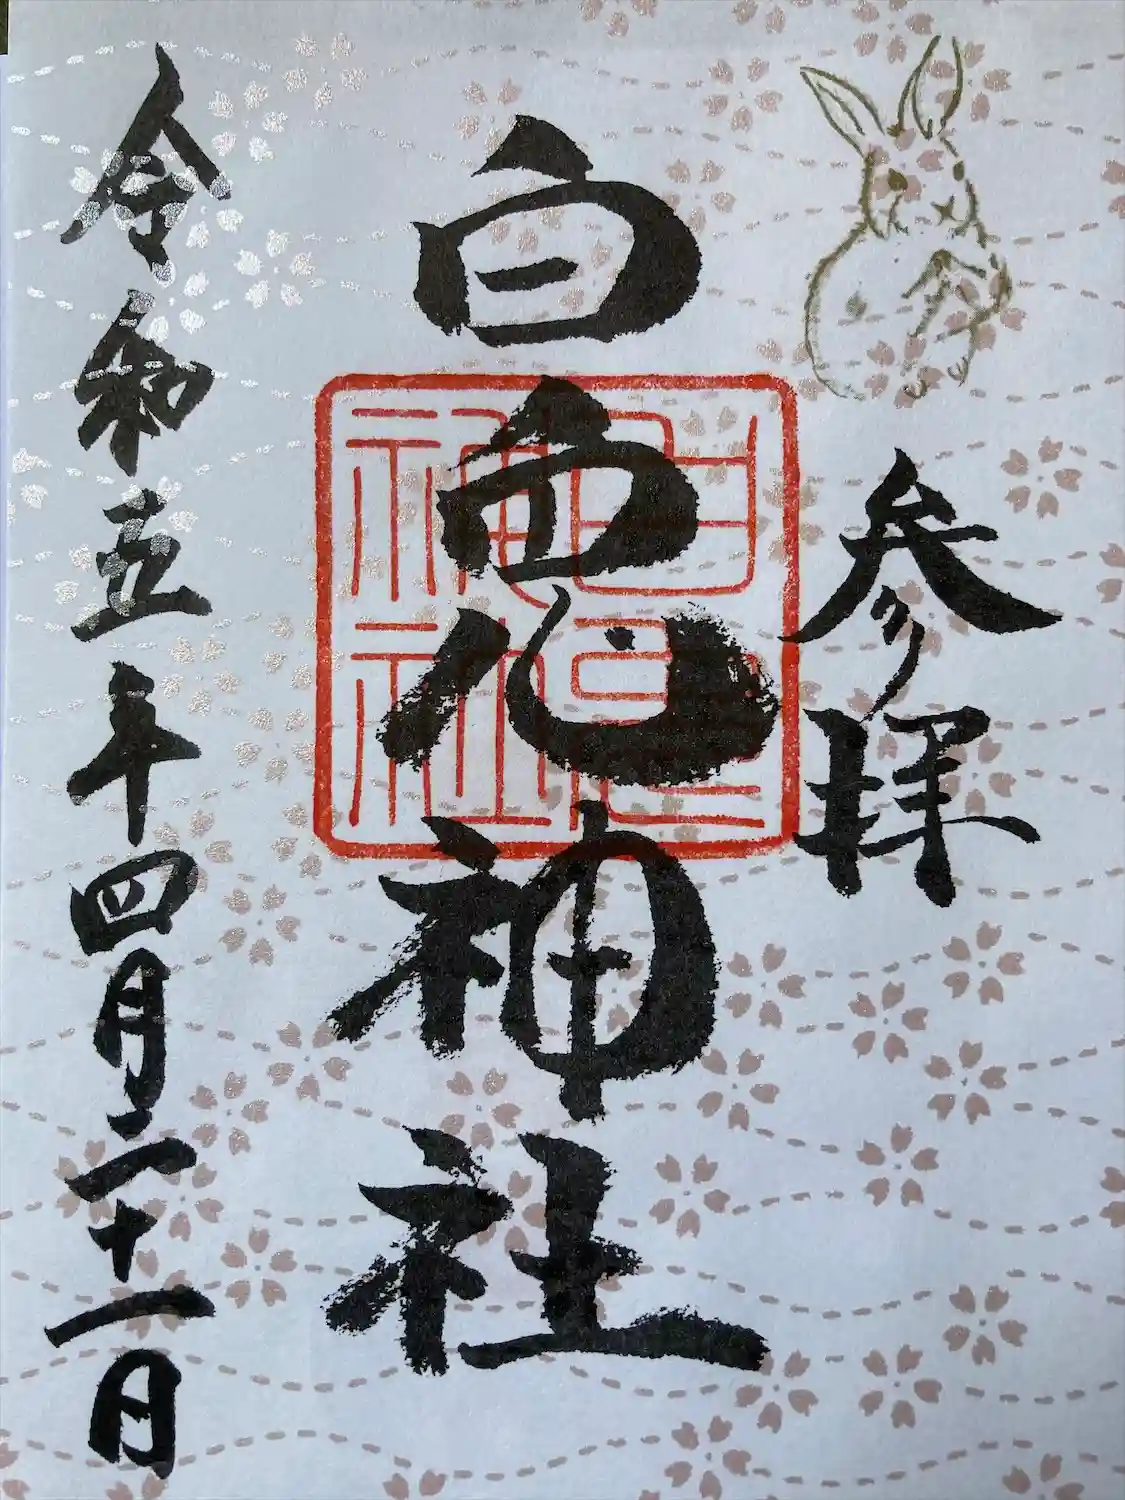 参拝
白兔神社
令和五年四月二十一日
白兔
神社